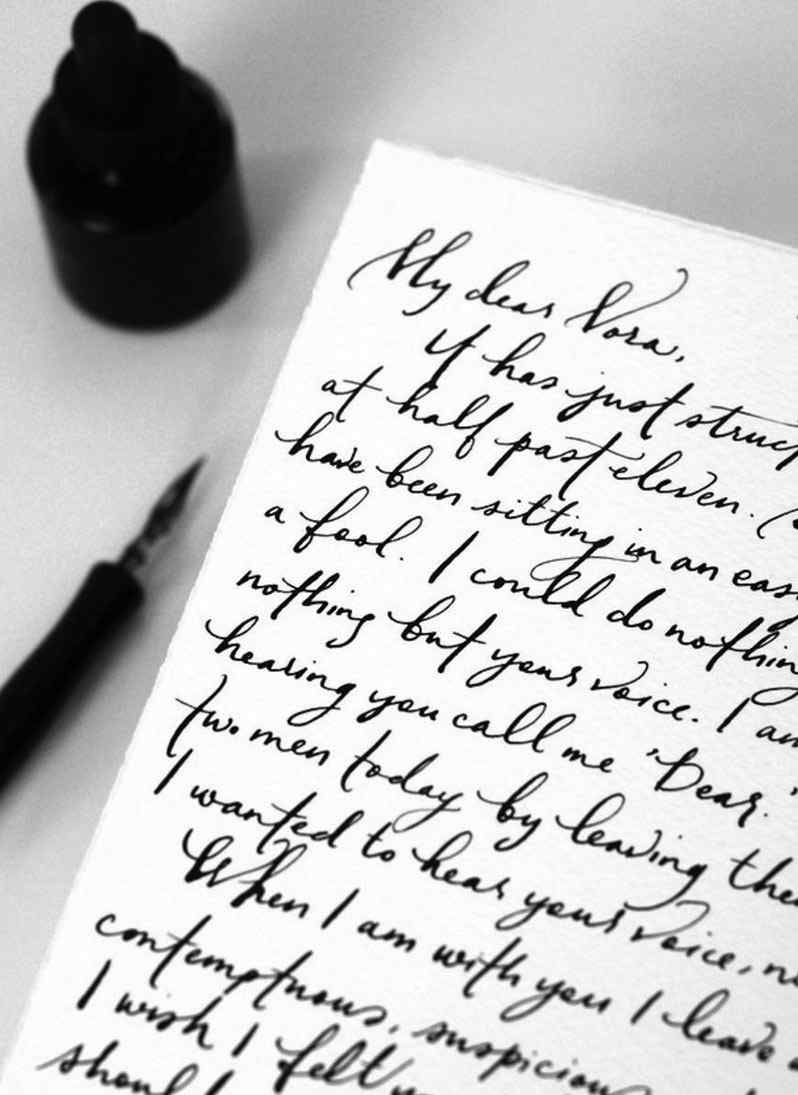 My dear Nora,
It has just struc
at half past eleven.
have been sitting in an eas
a fool. I could do nothin
nothing but your voice. I am
hearing you call me 'Dear.'
two men today by leaving the
I wanted to hear your voice, no
When I am with you I leave a
contemptuous, suspicious
I wish I felt
should